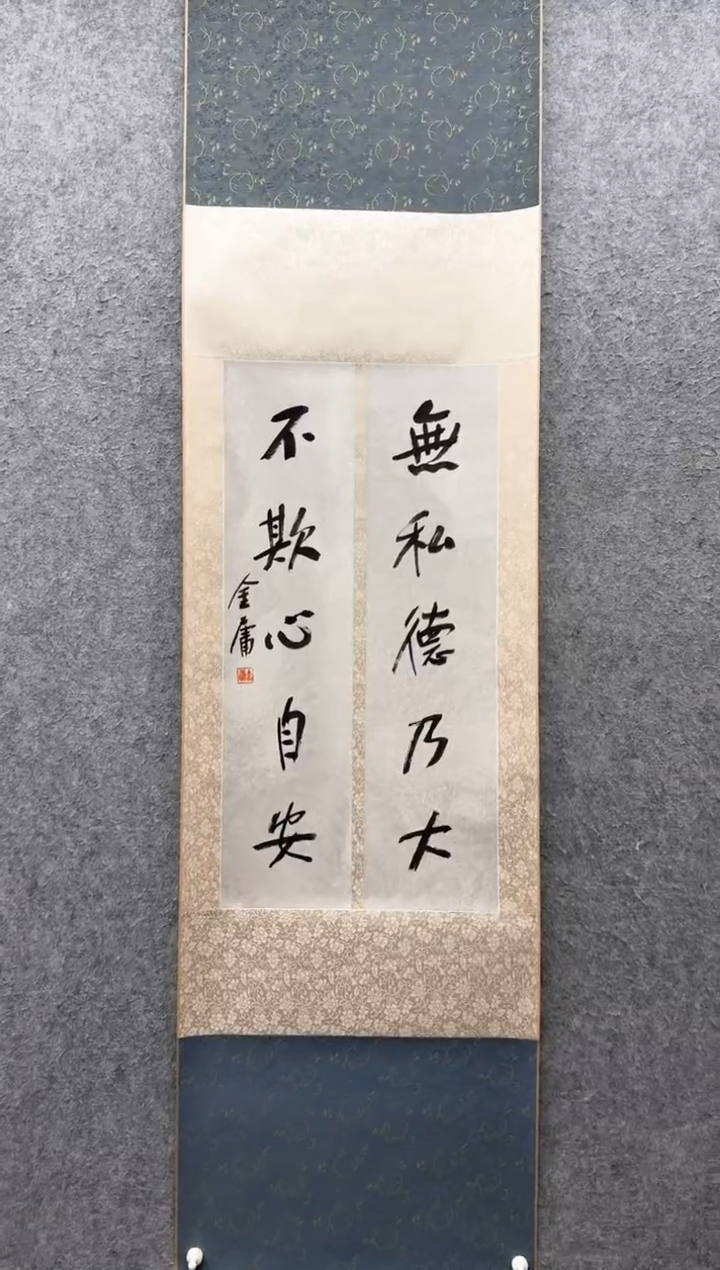 無私德乃大
不欺心自安
金庸